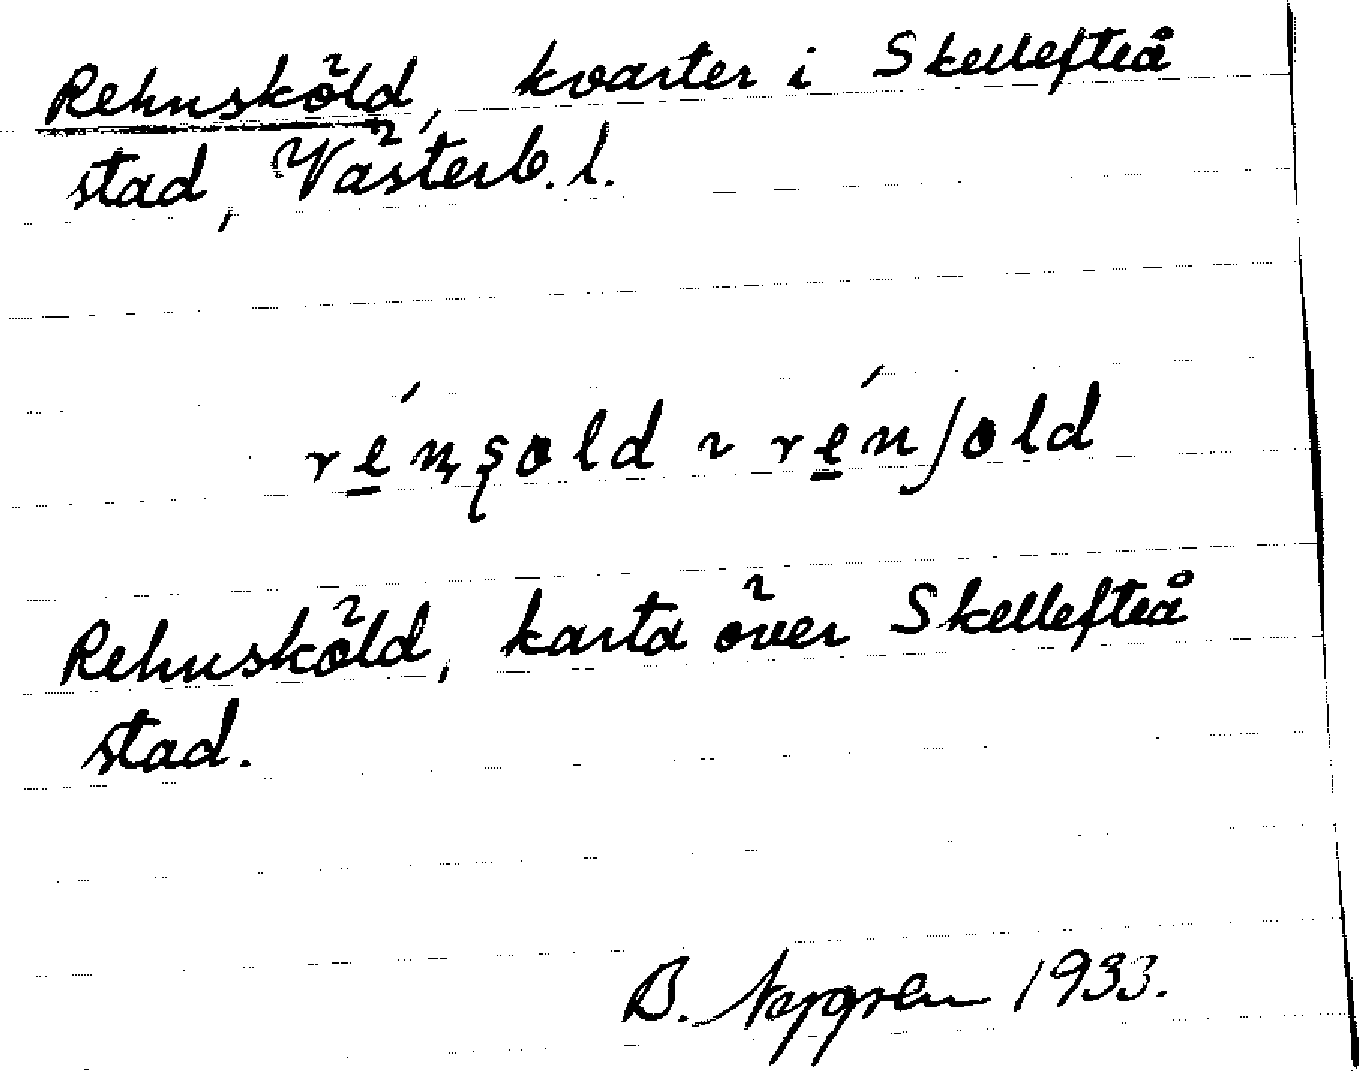 Rehnsköld, kvarter i Skellefteå
stad, Västerb. l.
ré̠nʂold ~ ré̠nʃold
Rehnsköld, karta över Skellefteå
stad.
B. 1933.